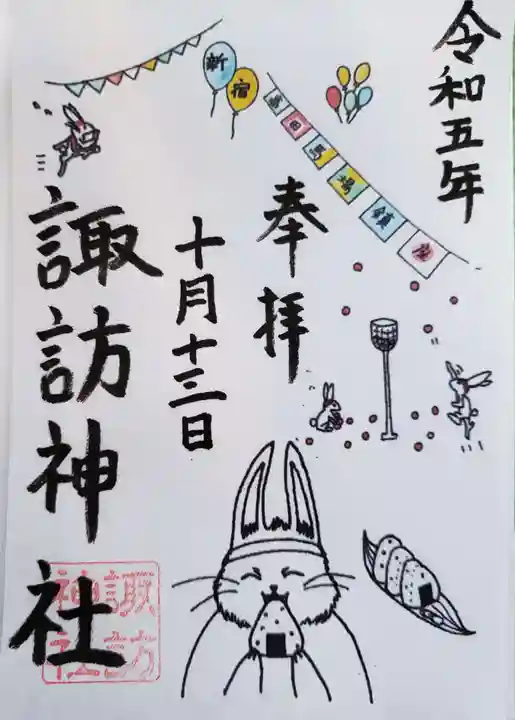 令和五年
新宿
高田馬場鎮座
奉拝
十月十三日
諏訪神社
諏訪
神社